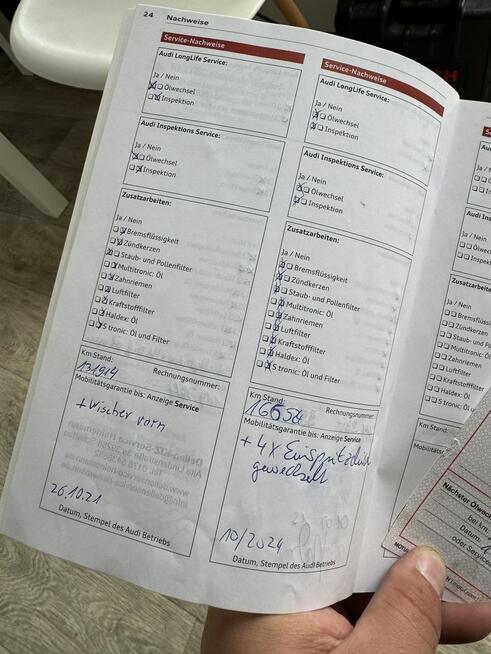 24 Nachweise
Service-Nachweise
Audi LongLife Service:
Ja / Nein
Ölwechsel
Inspektion
Audi Inspektions Service:
Ja / Nein
Ölwechsel
Inspektion
Zusatzarbeiten:
Ja / Nein
Bremsflüssigkeit
Zündkerzen
Staub- und Pollenfilter
Multitronic: Öl
Zahnriemen
Luftfilter
Kraftstofffilter
Haldex: Öl
S tronic: Öl und Filter
Km Stand:
131914
Rechnungsnummer:
Mobilitätsgarantie bis: Anzeige Service
+ Wischer vorn
26.10.21
Datum, Stempel des Audi Betriebs
Service-Nachweise
Audi LongLife Service:
Ja / Nein
Ölwechsel
Inspektion
Audi Inspektions Service:
Ja / Nein
Ölwechsel
Inspektion
Zusatzarbeiten:
Ja / Nein
Bremsflüssigkeit
Zündkerzen
Staub- und Pollenfilter
Multitronic: Öl
Zahnriemen
Luftfilter
Kraftstofffilter
Haldex: Öl
S tronic: Öl und Filter
Km Stand:
Rechnungsnummer:
Mobilitätsgarantie bis: Anzeige Service
+ 4x
gewechselt
10/2024
Datum, Stempel des Audi Betriebs
Ja / Nein
Ölwechsel
Zusatzarbeiten:
Ja / Nein
Zündkerzen
Zahnriemen
Luftfilter
Haldex: Öl
Km Stand:
Nächster Ölwech
bei km:
Datum:
oder Service